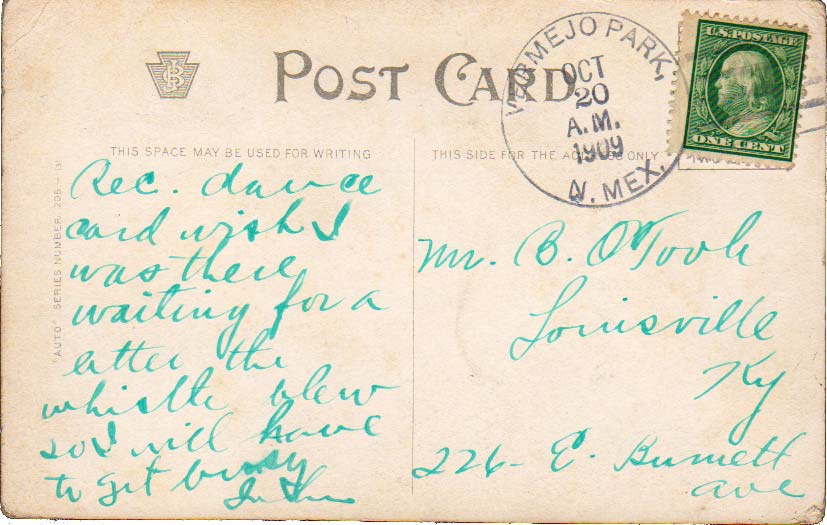 POST CARD
VERMEJO PARK,
OCT
20
A.M.
1909
N. MEX.
U.S. POSTAGE
ONE CENT
THIS SPACE MAY BE USED FOR WRITING
THIS SIDE FOR THE ADDRESS ONLY
"AUTO" SERIES NUMBER 205-131
Rec. dance
card wish I
was there
waiting for a
letter the
whistle blew
so I will have
to get busy
Mr. B. O'Toole
Louisville
Ky
226- E. Burnett
ave